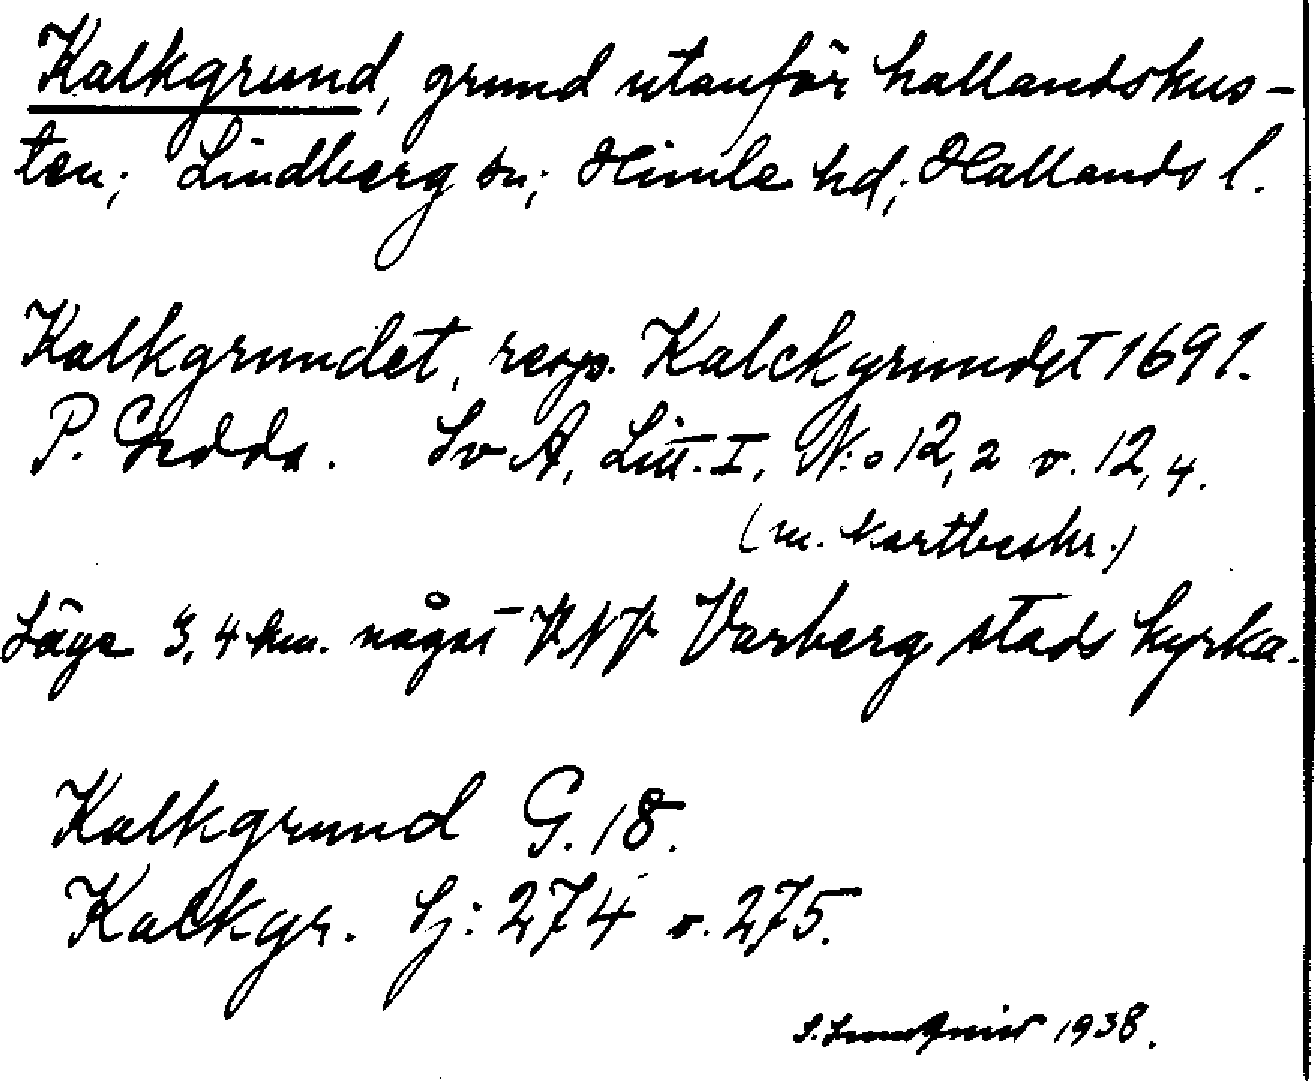 Kalkgrund, grund utanför hallandskus-
ten; Lindberg sn; Himle hd; Hallands l.
Kalkgrundet, resp. Kalckgrundet 1691.
P. Gedda. Sv A, Litt. I, N:o 12, 2 o. 12, 4.
(m. kartbeskr.)
Läge 3,4 km. något VNV Varberg stads kyrka.
Kalkgrund G. 18.
Kalkgr. Sj: 274 o. 275.
1938.